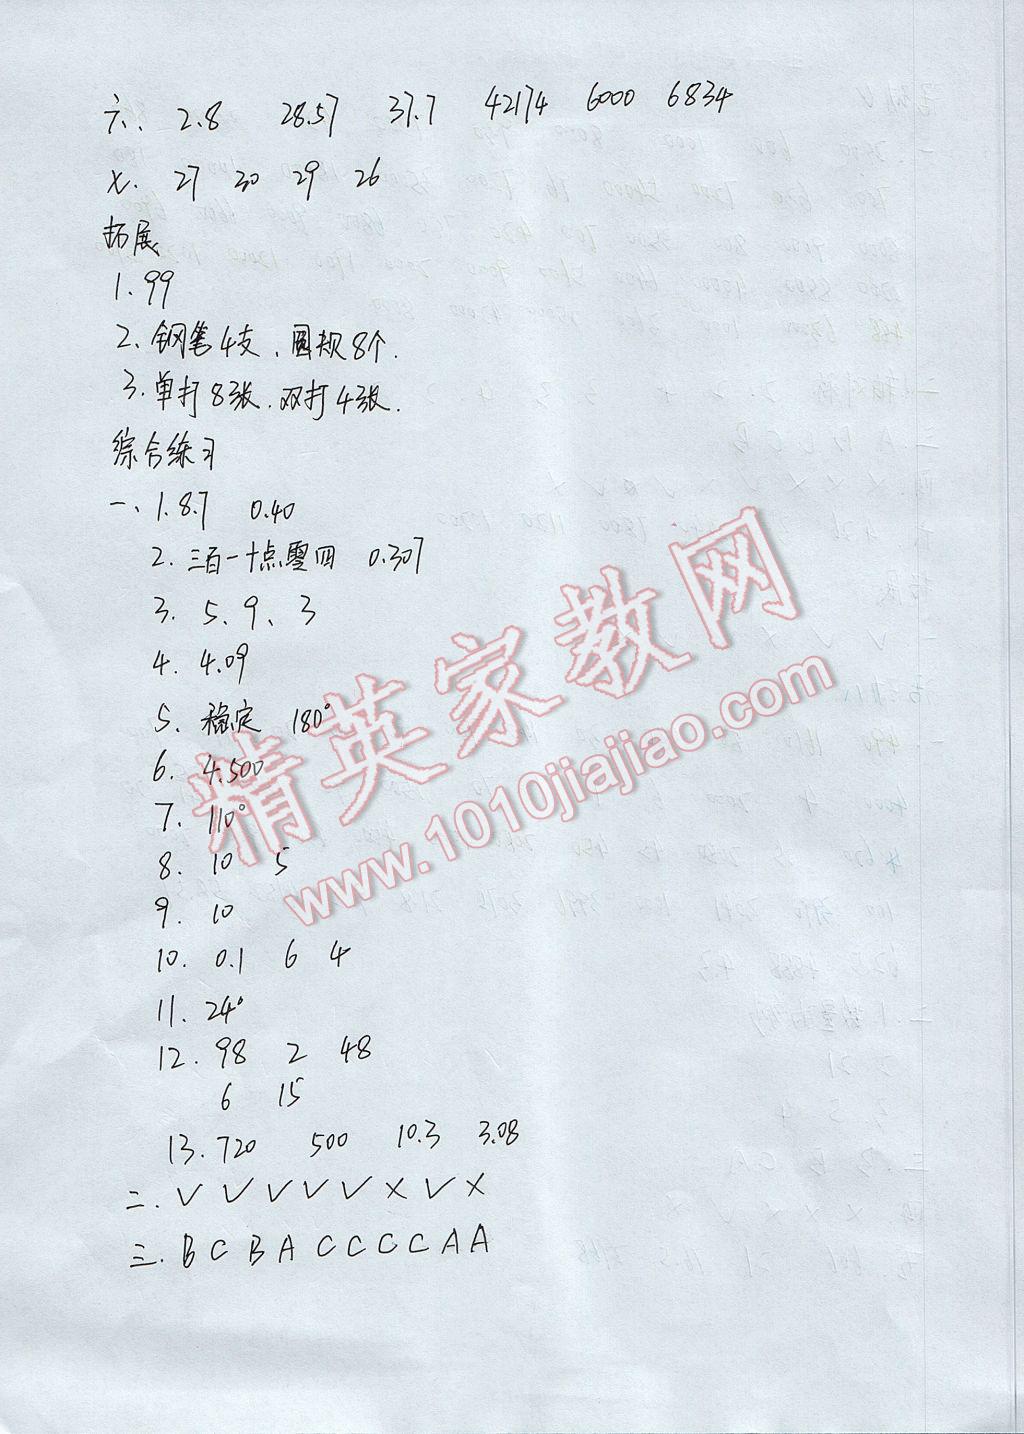 六、 2.8 28.57 37.7 42174 6000 6834
七. 27 30 29 26
拓展
1. 99
2. 钢笔4支、圆规8个.
3. 单打8张.双打4张.
综合练习
一、1. 8.7 0.40
2. 三百一十点零四 0.307
3. 5、9、3
4. 4.09
5. 稳定 180°
6. 4.500
7. 110°
8. 10 5
9. 10
10. 0.1 6 4
11. 24°
12. 98 2 48
6 15
13. 720 500 10.3 3.08
二. √ √ √ √ √ × √ ×
三. B C B A C C C C A A
精英家教网
www.1010jiajiao.com